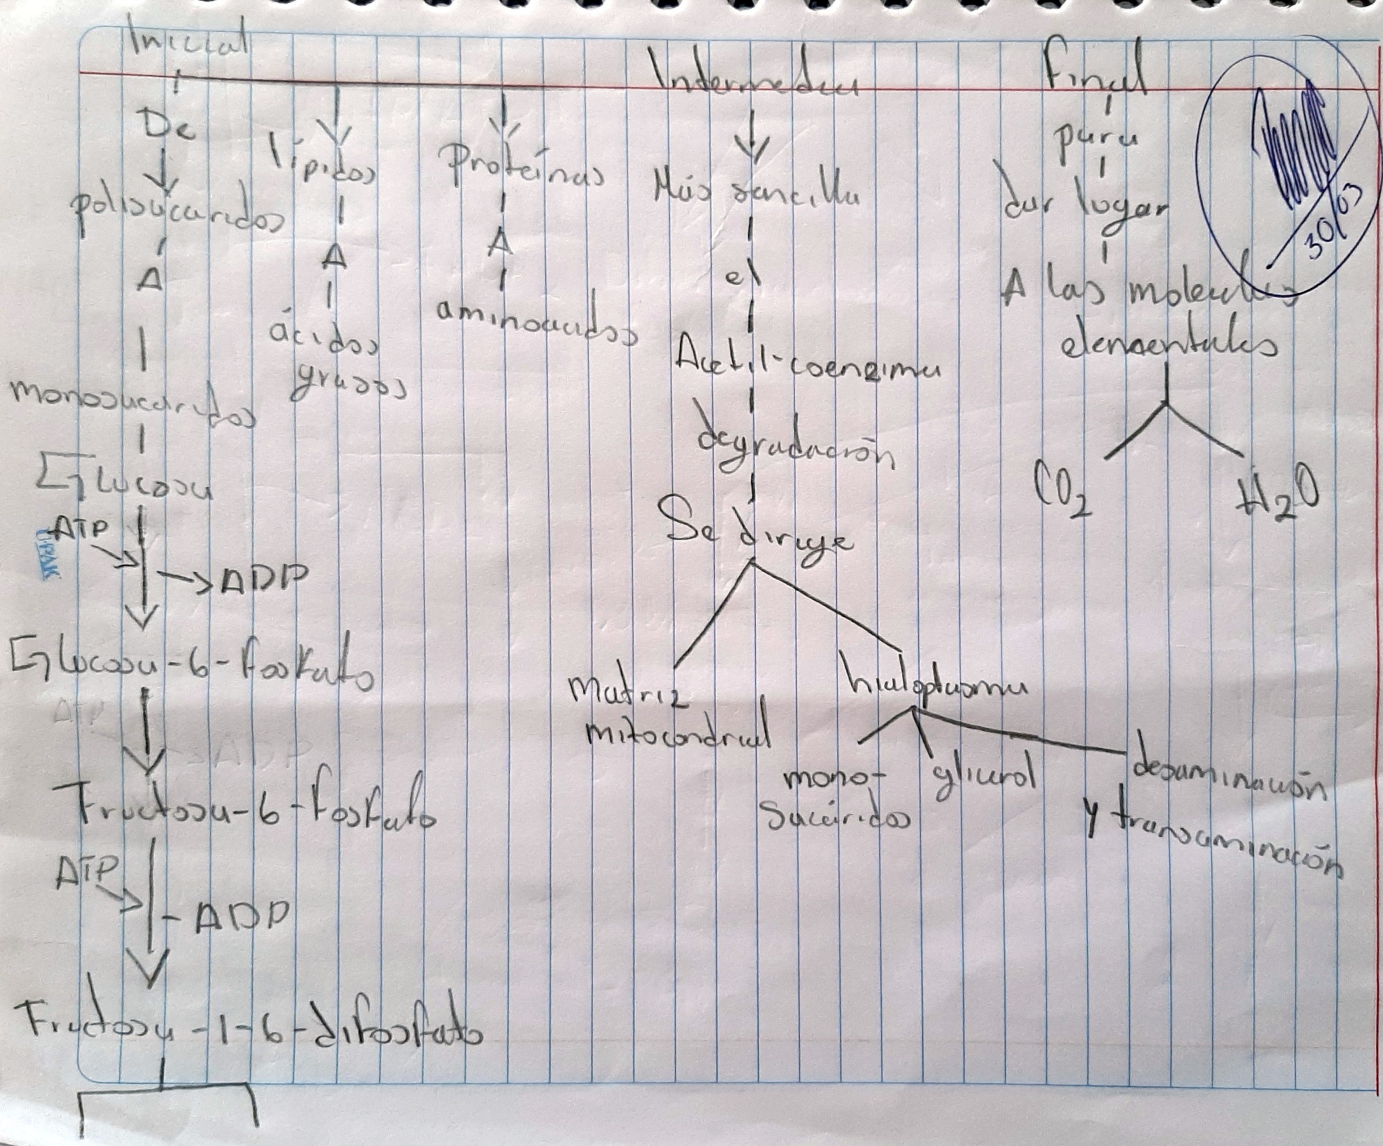 Inicial
De
polisacaridos
A
monosacaridos
Glucosa
ATP
ADP
Glucosa-6-fosfato
Fructosa-6-fosfato
ATP
ADP
Fructosa-1-6-difosfato
lípidos
A
ácidos
grasos
Proteínas
A
aminoacidos
Intermedia
Más sencilla
el
Acetil-coenzima
degradación
Se dirige
matriz
mitocondrial
hialoplasma
mono-
sacáridos
glicerol
desaminación
y transaminación
Final
para
dar lugar
A las moleculas
elementales
CO2
H2O
30/03